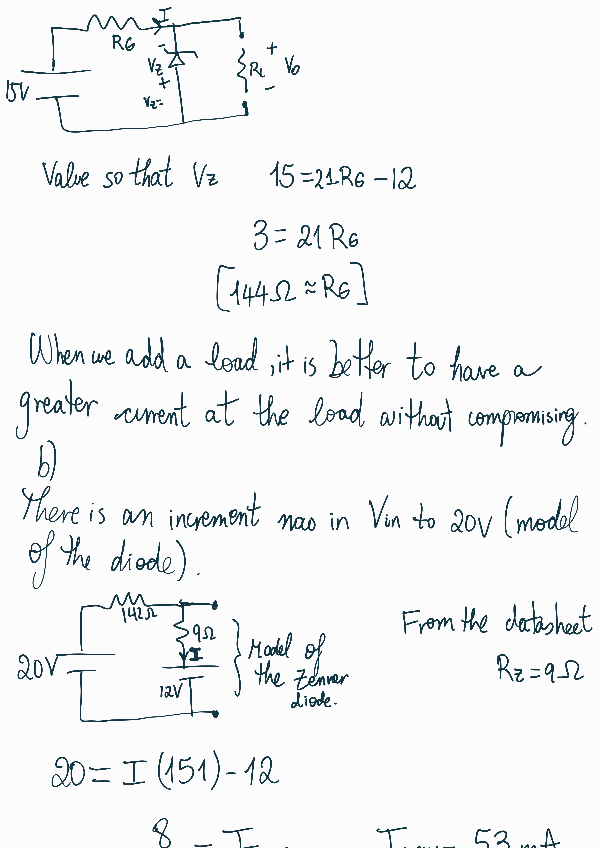 I
RG
15V
Vz
-
+
Vz=
RL
+
Vo
-
Value so that Vz 15=21RG-12
3=21RG
[144Ω≈RG]
When we add a load, it is better to have a
greater current at the load without compromising.
b)
There is an increment nao in Vin to 20V (model
of the diode).
142Ω
9Ω
I
20V
12V
Model of
the Zenner
diode.
From the datasheet
Rz=9Ω
20=I(151)-12
8 = I
53 mA